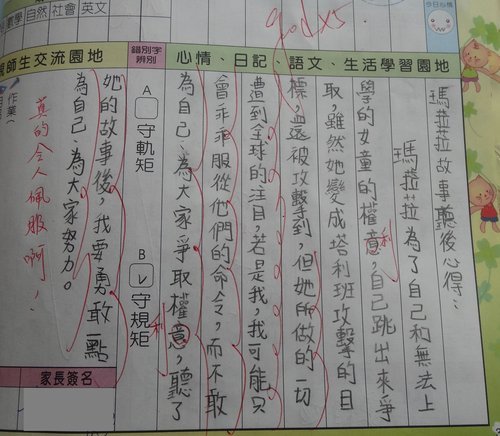 數學 自然 社會 英文
今日心情
good x5
心情、日記、語文、生活學習園地
錯別字辨別
師生交流園地
瑪菈菈故事聽後心得:
瑪菈菈為了自己和無法上
學的女童的權意,自己跳出來爭
利
取,雖然她變成塔利班攻擊的目
標,還被攻擊到,但她所做的一切
遭到全球的注目,若是我,我可能只
會乖乖服從他們的命令,而不敢
為自己、為大家爭取權意,聽了
利
A 守軌矩
B v 守規矩
她的故事後,我要勇敢一點
為自己、為大家努力。
真的令人佩服啊!
家長簽名